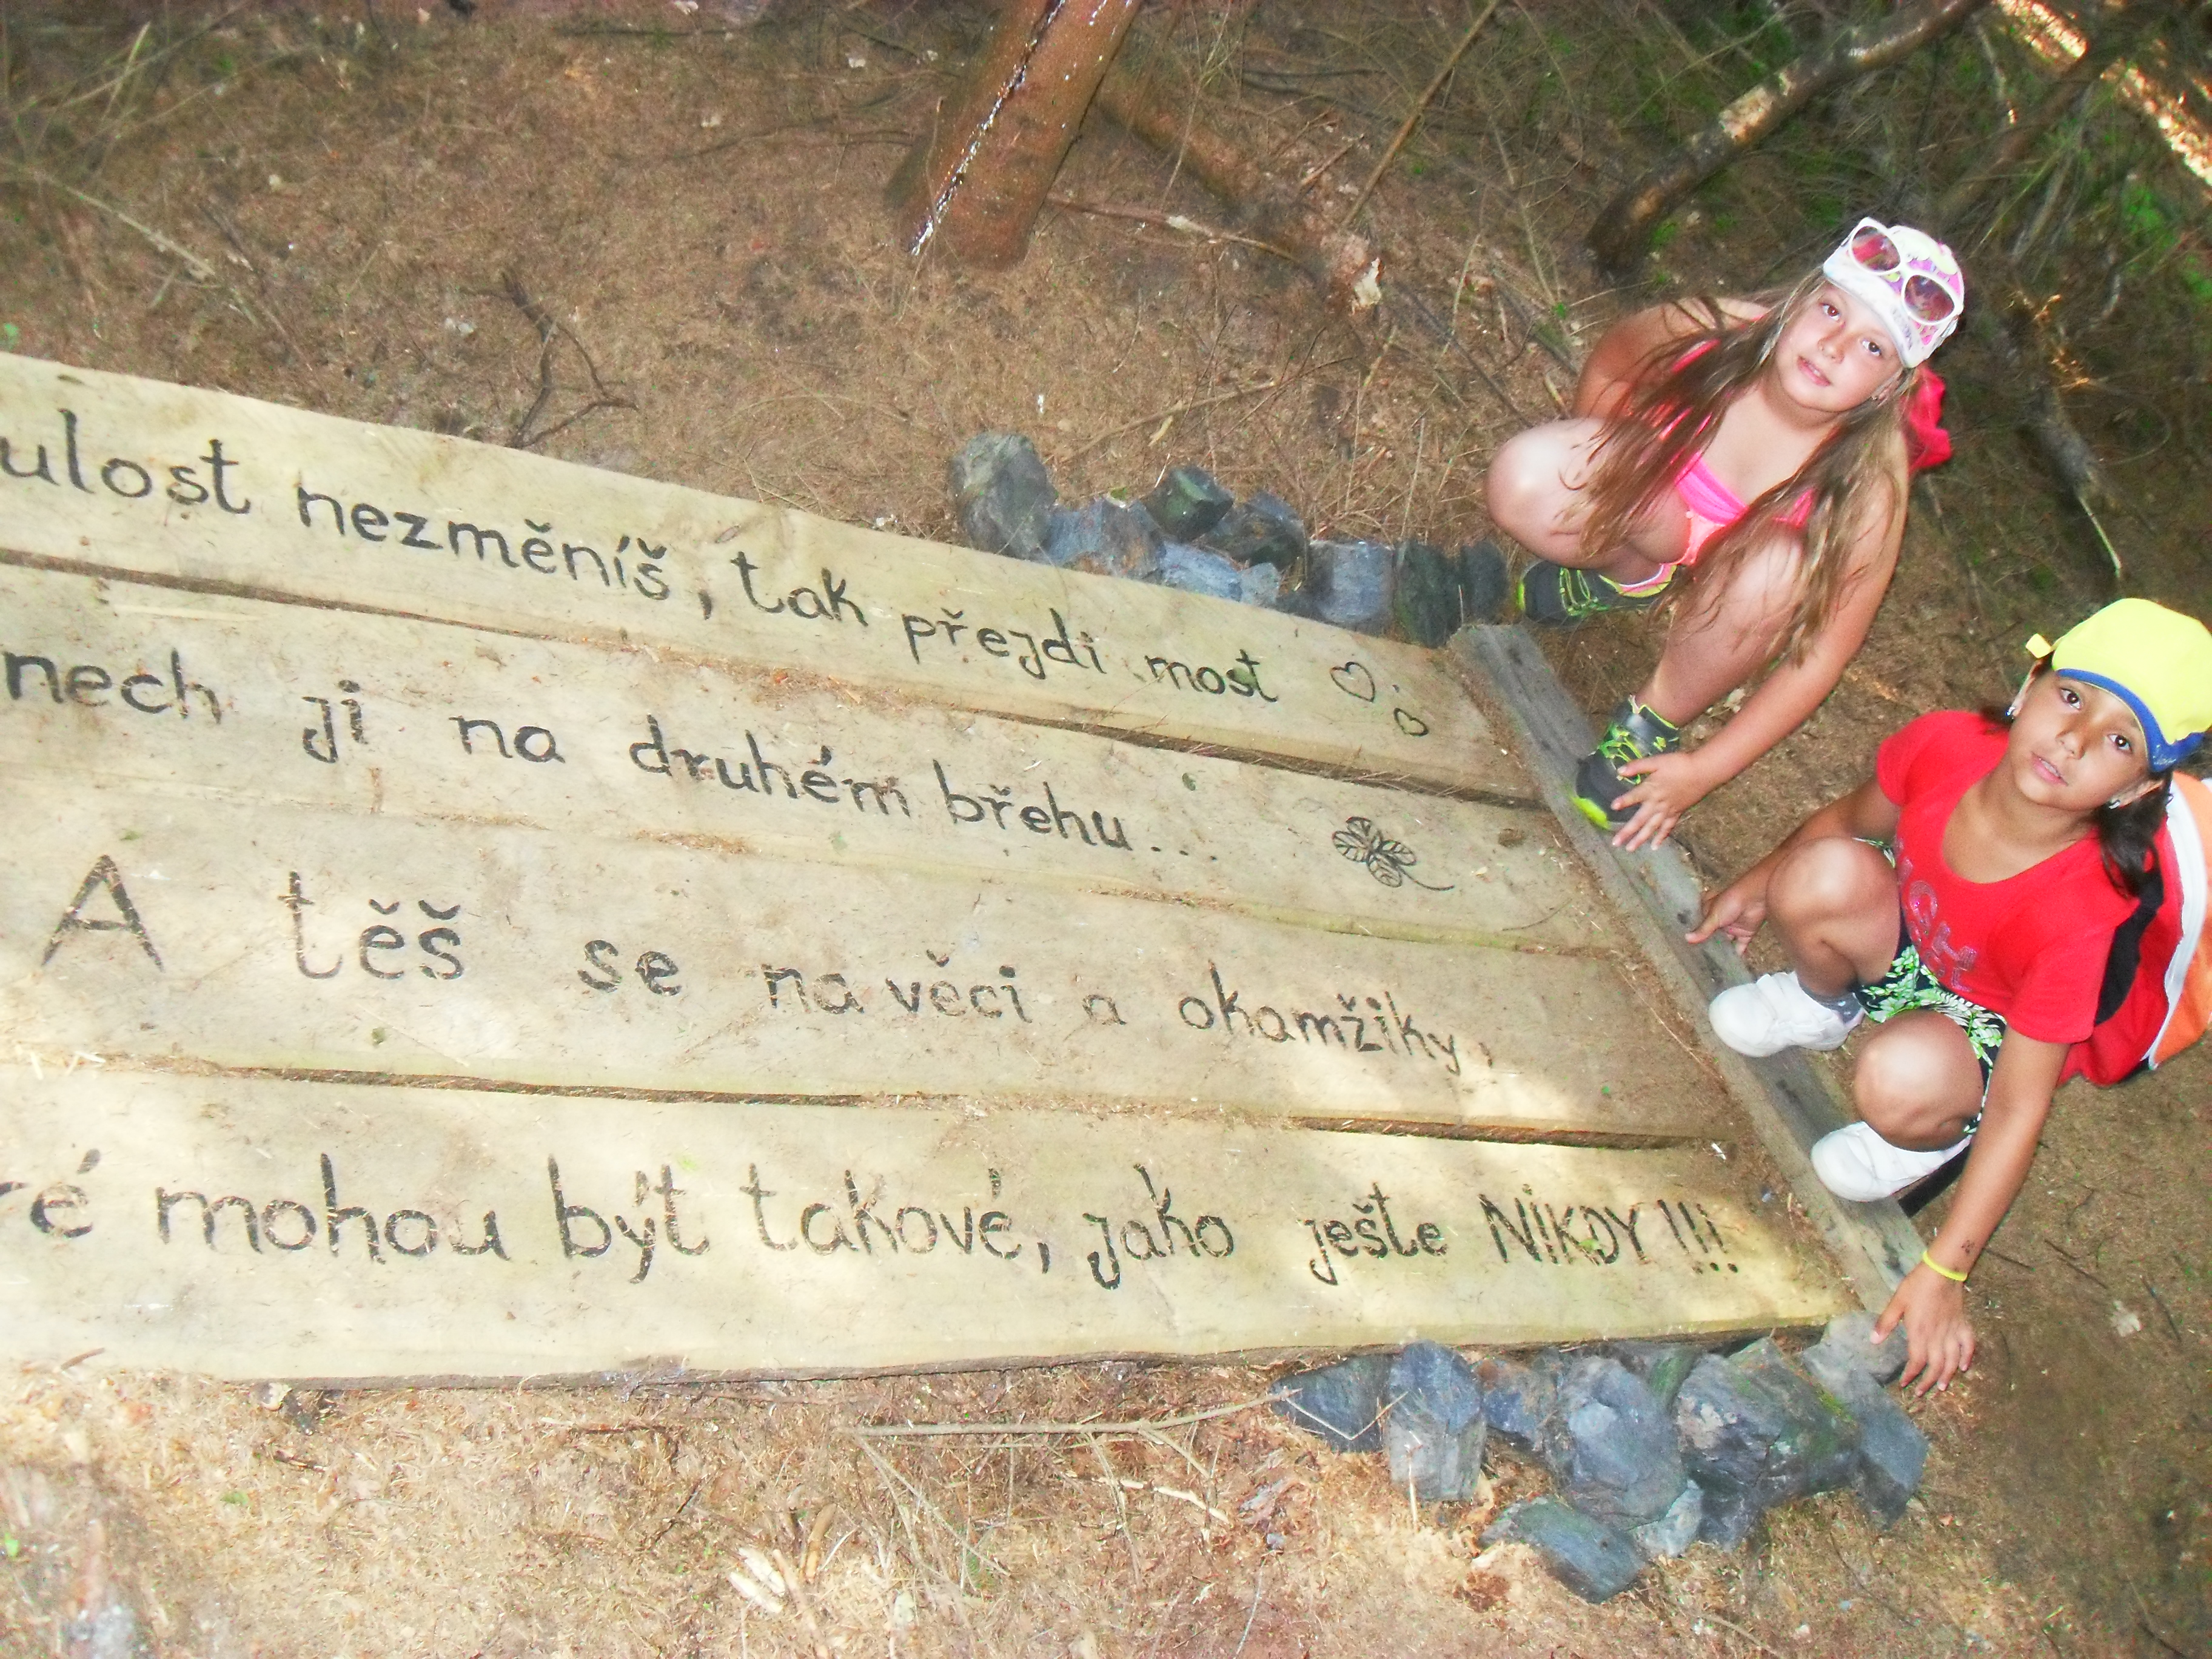 ulost nezměníš, tak přejdi most
nech ji na druhém břehu...
A těš se na věci a okamžiky,
ré mohou být takové, jako ješte NIKDY!!!